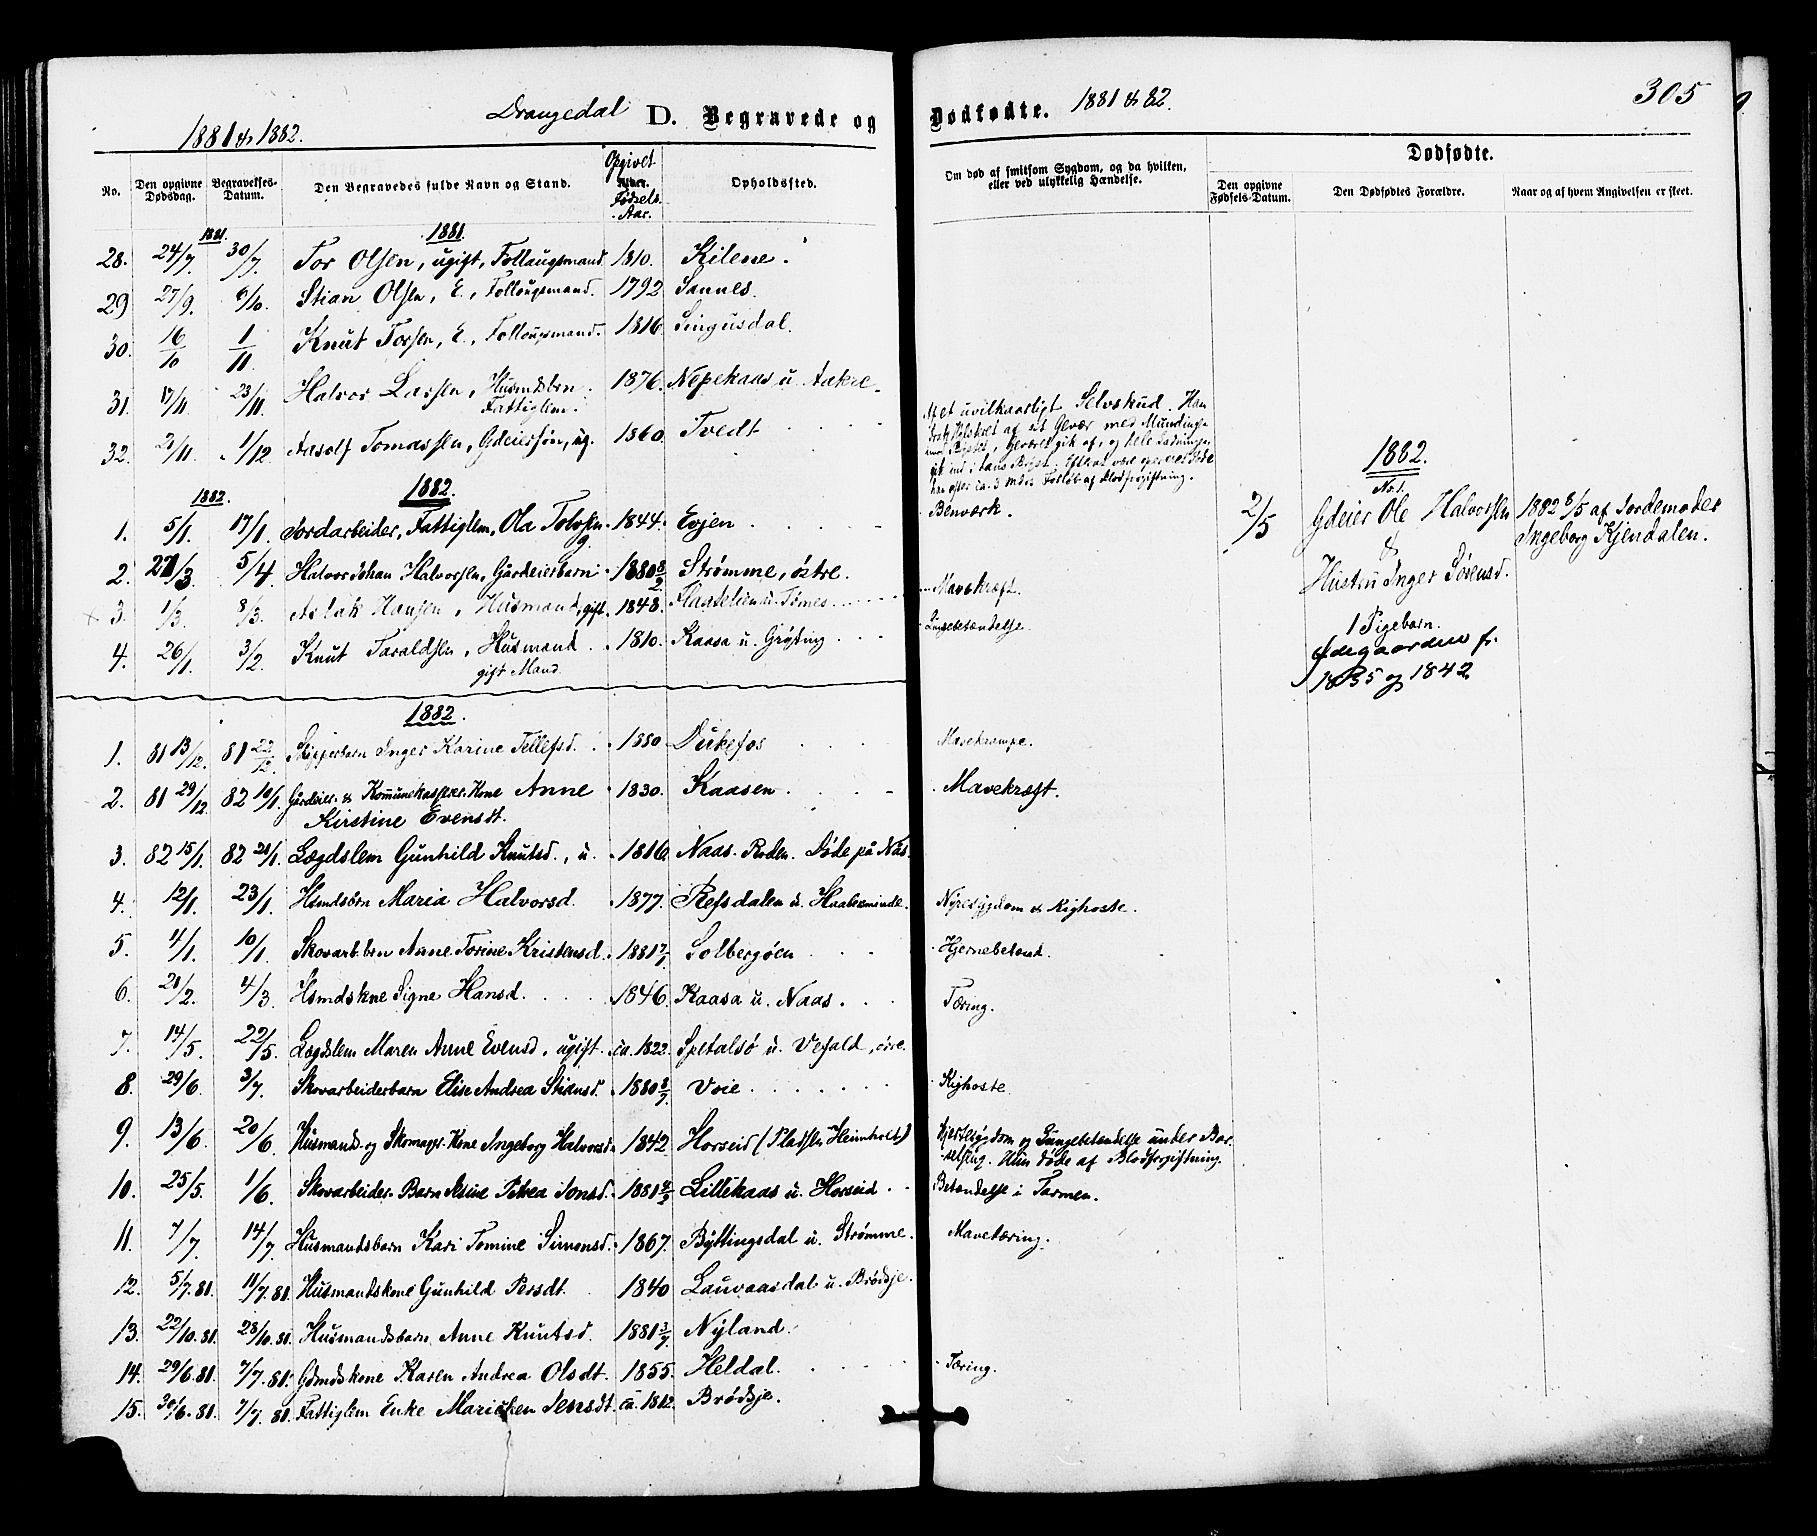 305
1881 & 1882. Drangedal D. Begravede og Dødfødte. 1881 & 82.
No. Den opgivne Dødsdag. Begravelses-Datum. Den Begravedes fulde Navn og Stand. Opgivet Fødsels Aar. Opholdssted. Om død af smitsom Sygdom, og da hvilken, eller ved ulykkelig Hændelse.
Dødfødte.
Den opgivne Fødsels-Datum. Den Dødfødtes Forældre. Naar og af hvem Angivelsen er skeet.
1881. 1881.
28. 24/7. 30/7. Tor Olsen, ugift, Follaugsmand 1810. Kilene.
29 27/9. 6/10. Stian Olsen, E., Follougsmand. 1792 Sannes.
30. 16/10 1/11. Knut Torsen, E., Follougsmand. 1816. Singusdal.
31. 17/11. 23/11. Halvor Larsen, Husmdsbrn Fattiglem. 1876. Nepekaas u. Aakre
32. 2/11. 1/12. Aasolf Tomassen, Gdeiersøn, ug. 1860. Tvedt
uvilkaarligt Selvskud. Han
af et Gevær med Mundingen
Geværet gik af, og hele Ladningen
gik ind i hans Bryst.
han efter ca. 3 Forløb af Blodforgiftning.
1882. 1882.
1. 5/1. 17/1. Jordarbeider, Fattiglem, Ola 1844. Evjen Benværk.
2. 27/3. 5/4. Halvor Johan Halvorsen, Gårdeierbarn 1880 8/2 Strømme, østre.
3. 1/3. 8/3. Aslak Hansen, Husmand, gift. 1848. Flaatelien u. Tømes Mavekræft.
4. 26/1. 3/2. Knut Taraldsen, Husmand 1810. Kaasa u. Grøting Lungebetændelse.
gift Mand.
1882.
No 1.
2/5 Gdeier Ole Halvorsen 1882 8/5 af Jordemoder
& Ingeborg Kjendalen.
Hustru Inger Sørensd.
1 Pigebarn.
Ødegaarden f.
1835 og 1842
1882.
1. 81 13/12. 81 22/12. Skipperbarn Inger Karine Tellefsd. 1880 Dukefos Mavekrampe.
2. 81 29/12. 82 10/1. Gårdeier & Kommunekasserer Kone Anne 1830. Kaasen Mavekræft.
Kirstine Evensdt.
3. 82 15/1. 82 21/1. Lægdslem Gunhild Knutsd., u. 1816 Naas. Roden. Døde på Nås.
4. 12/1. 23/1. Hsmdsbrn Maria Halvorsd. 1877. Refsdalen u. Haatveminde. Nyresygdom & Kighoste.
5. 4/1. 10/1. Skovarb.brn Anne Torine Kristensd. 1881 7/7 Solbergøen Hjernebetænd.
6. 21/2. 4/3. Hsmdskne Signe Hansd. 1846. Kaasa u. Naas. Tæring.
7. 14/5. 22/5. Lægdslem Maren Anne Evensd, ugift. ca. 1822. Spetalsø u. Vefald, øvre.
8. 29/6. 3/7. Skovarbeiderbarn Elise Andrea Stiansd. 1880 8/7 Voie Kighoste.
9. 13/6. 20/6. Husmand- og Skomager Kone Ingeborg Halvorsd. 1842. Horseid (Pladsen Heimholt) Hjertesygdom og Lungebetændelse under Barselseng. Hun døde af Blodforgiftning.
10. 25/5. 1/6. Skovarbeider Barn Asine Petrea Jonsd. 1881 4/2 Lillekaas u. Horseid Betændelse i Tarmen.
11. 7/7. 14/7. Husmandsbarn Kari Tomine Simonsd. 1867. Byttingsdal u. Strømme. Mavetæring.
12. 5/7. 81. 11/7. 81. Husmandskone Gunhild Persdt. 1840 Lauvaasdal u. Brødsje.
13. 22/10. 81. 28/10. 81. Husmandsbarn Anne Knutsd. 1881 3/7 Nyland.
14. 29/6. 81. 7/7. 81. Gdmdskone Karen Andrea Olsdt. 1855. Heldal. Tæring.
15. 30/6. 81. 7/7. 81. Fattiglem Enke Marichen Jensdt. ca. 1812. Brødsje.